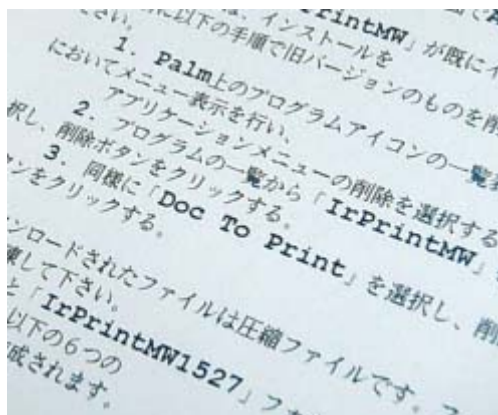 rintMW」が既にイ
は、インストールを
に以下の手順で旧バージョンのものを削
1. Palm上のプログラムアイコンの一覧表
においてメニュー表示を行い、
アプリケーションメニューの削除を選択する
2. プログラムの一覧から「IrPrintMW」
択し、削除ボタンをクリックする。
3. 同様に「Doc To Print」を選択し、削
タンをクリックする。
ンロードされたファイルは圧縮ファイルです。
凍して下さい。
と「IrPrintMW1527」フォ
以下の6つの
成されます。